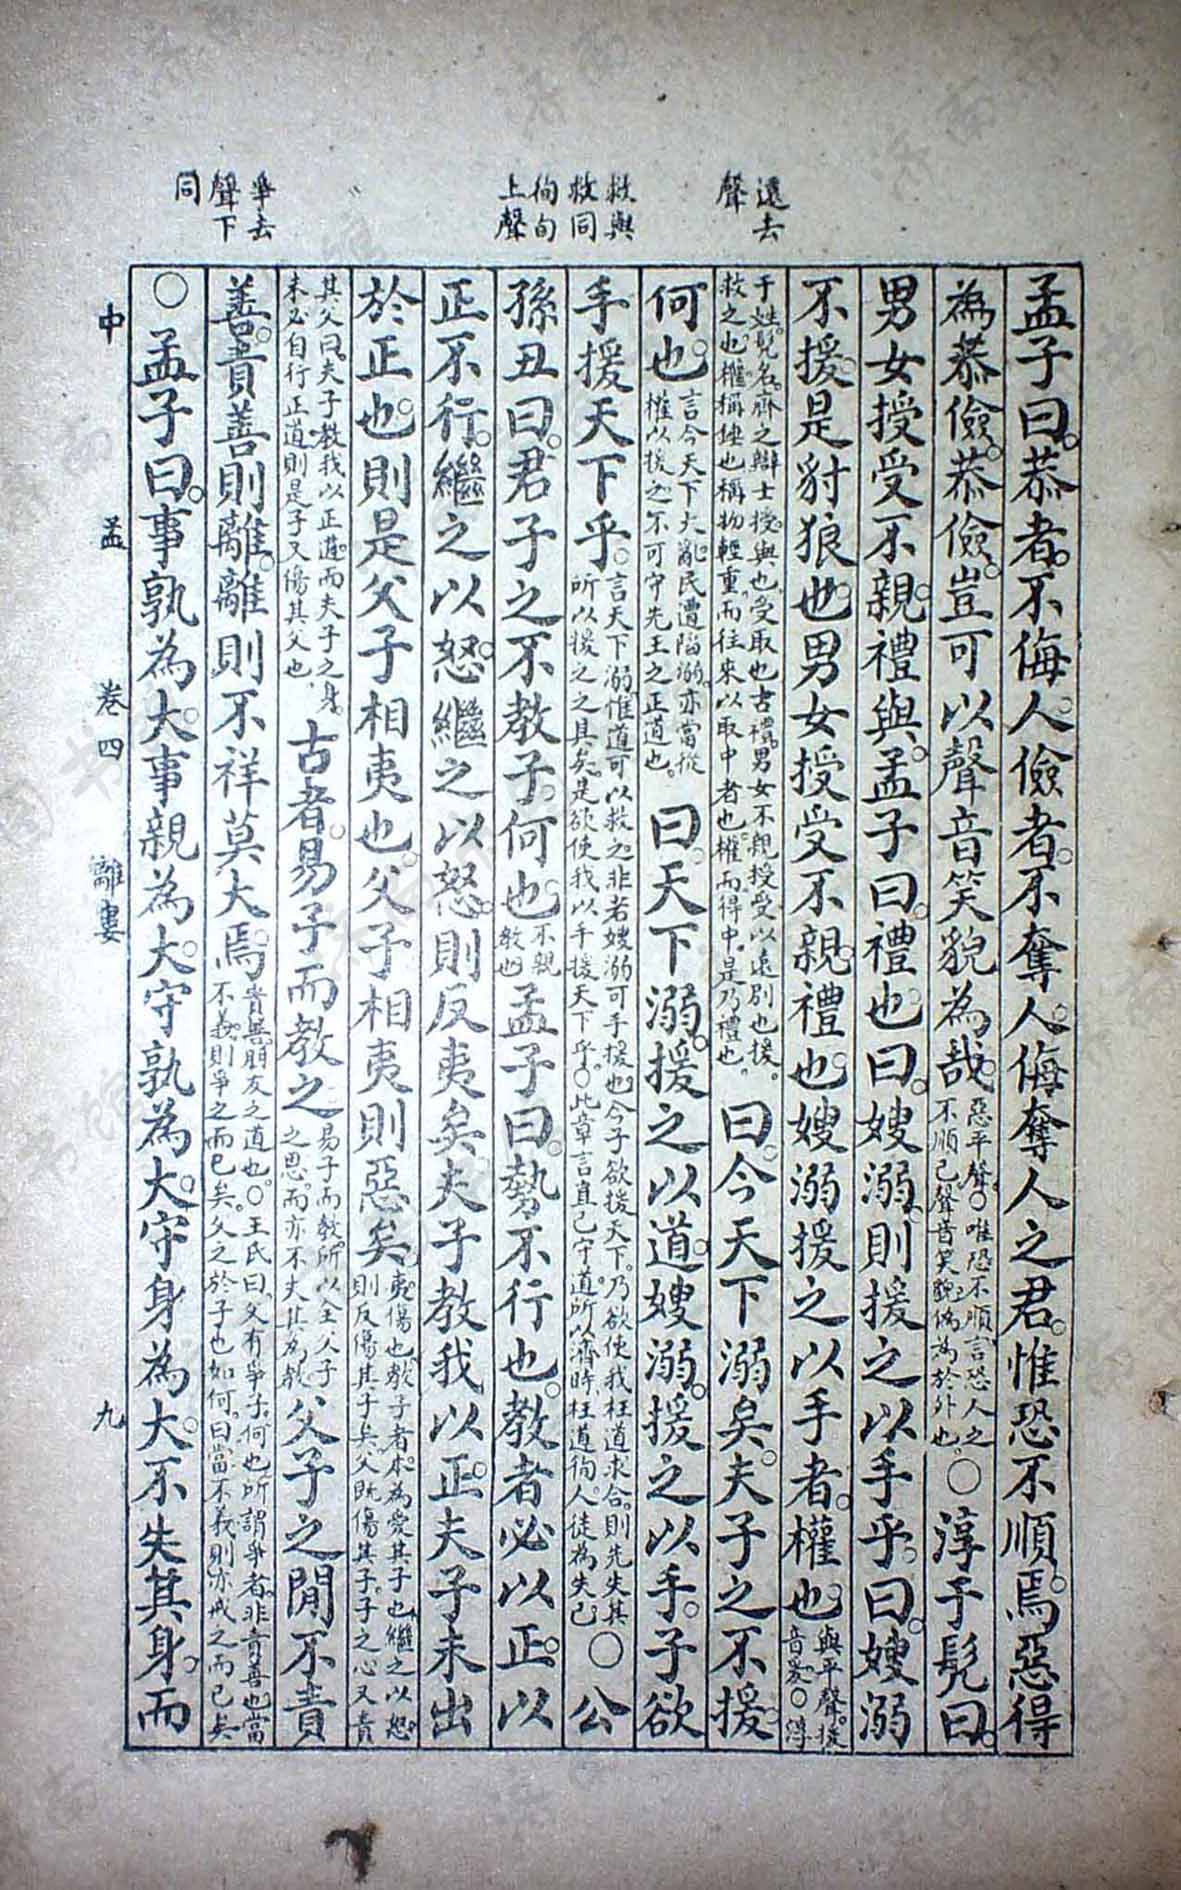 遠去
聲
救與
救同
徇旬
上聲
爭去
聲下
同
孟子曰。恭者。不侮人。儉者。不奪人。侮奪人之君。惟恐不順。焉惡得
為恭儉。恭儉。豈可以聲音笑貌為哉。惡平聲。○唯恐不順。言恐人之不順己。聲音笑貌。偽為於外也。○淳于髡曰。
男女授受不親。禮與。孟子曰。禮也。曰。嫂溺。則援之以手乎。曰。嫂溺
不援。是豺狼也。男女授受不親。禮也。嫂溺援之以手者。權也。與平聲。援音爰。○淳
于姓。髡名。齊之辯士。授。與也。受。取也。古禮。男女不親授受。以遠別也。援。救之也。權。稱錘也。稱物輕重。而往來以取中者也。權而得中。是乃禮也。曰。今天下溺矣。夫子之不援。
何也。言今天下大亂。民遭陷溺。亦當從權以援之。不可守先王之正道也。曰。天下溺。援之以道。嫂溺。援之以手。子欲
手援天下乎。言天下溺。惟道可以救之。非若嫂溺可手援也。今子欲援天下。乃欲使我枉道求合。則先失其所以援之之具矣。是欲使我以手援天下乎。○此章言直己守道。所以濟時。枉道徇人。徒為失己。○公
孫丑曰。君子之不教子。何也。不親教也。孟子曰。勢不行也。教者必以正。以
正不行。繼之以怒。繼之以怒。則反夷矣。夫子教我以正。夫子未出
於正也。則是父子相夷也。父子相夷。則惡矣。夷。傷也。教子者。本為愛其子也。繼之以怒。則反傷其子矣。父既傷其子。子之心又責
其父曰。夫子教我以正道。而夫子之身。未必自行正道。則是子又傷其父也。古者易子而教之。易子而教。所以全父子之恩。而亦不失其為教。父子之閒不責
善。責善則離。離則不祥莫大焉。責善。朋友之道也。○王氏曰。父有爭子。何也。所謂爭者。非責善也。當不義。則爭之而已矣。父之於子也如何。曰。當不義。則亦戒之而已矣
○孟子曰。事孰為大。事親為大。守孰為大。守身為大。不失其身。而
中 孟 卷四 離婁 九